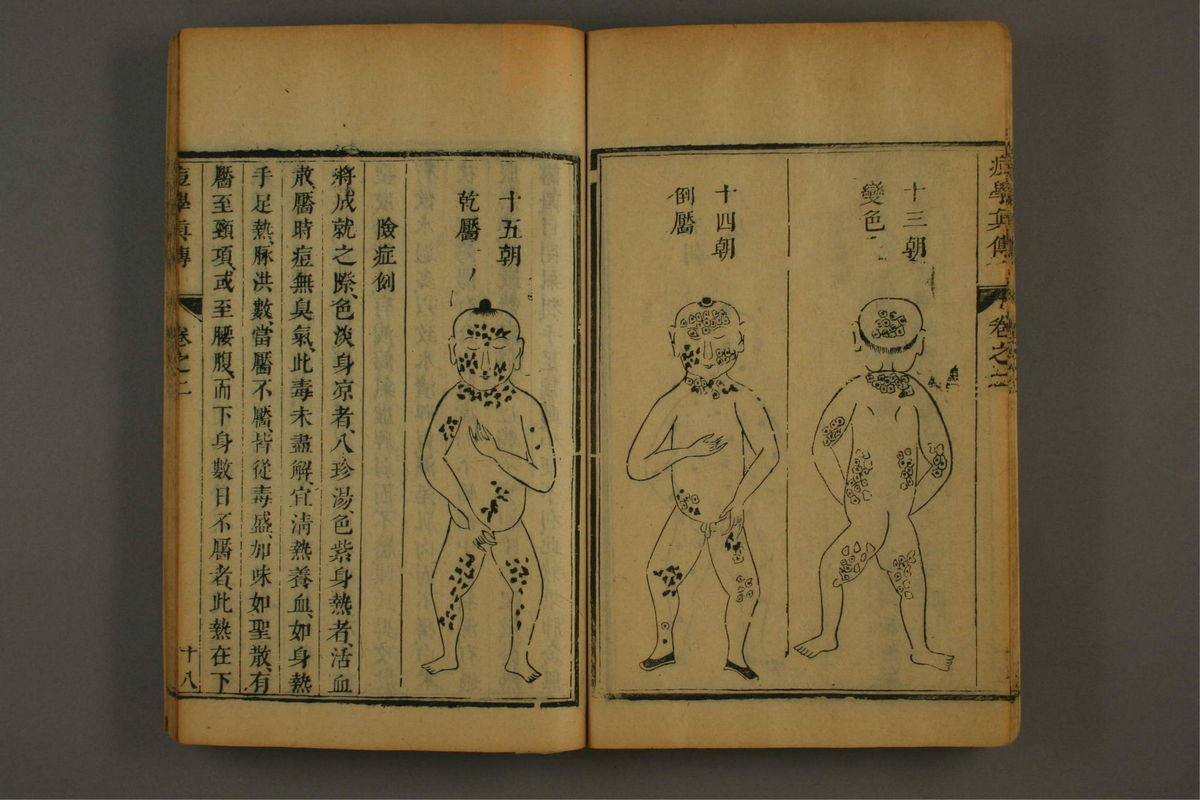 痘學真傳
卷之二
十三朝
變色
十四朝
倒靨
十五朝
乾靨
險症倒
將成就之際、色淡身凉者、八珍湯、色紫身熱者、活血
散、靨時痘無臭氣、此毒未盡解、宜清熱養血、如身熱
手足熱、脉洪數、當靨不靨、皆從毒盛、加味如聖散、有
靨至頸項、或至腰腹、而下身數日不靨者、此熱在下
痘學真傳
卷之二
十八